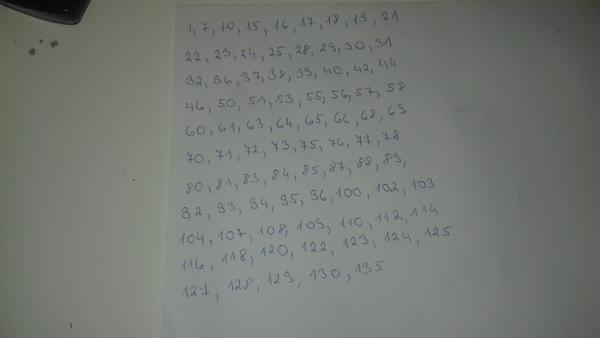 1, 7, 10, 15, 16, 17, 18, 19, 21
22, 23, 24, 25, 28, 29, 30, 31
32, 36, 37, 38, 39, 40, 42, 44
46, 50, 51, 53, 55, 56, 57, 58
60, 61, 63, 64, 65, 66, 68, 69
70, 71, 72, 73, 75, 76, 77, 78
80, 81, 83, 84, 85, 87, 88, 89,
92, 93, 94, 95, 96, 100, 102, 103
104, 107, 108, 109, 110, 112, 114
116, 118, 120, 122, 123, 124, 125
127, 128, 129, 130, 135